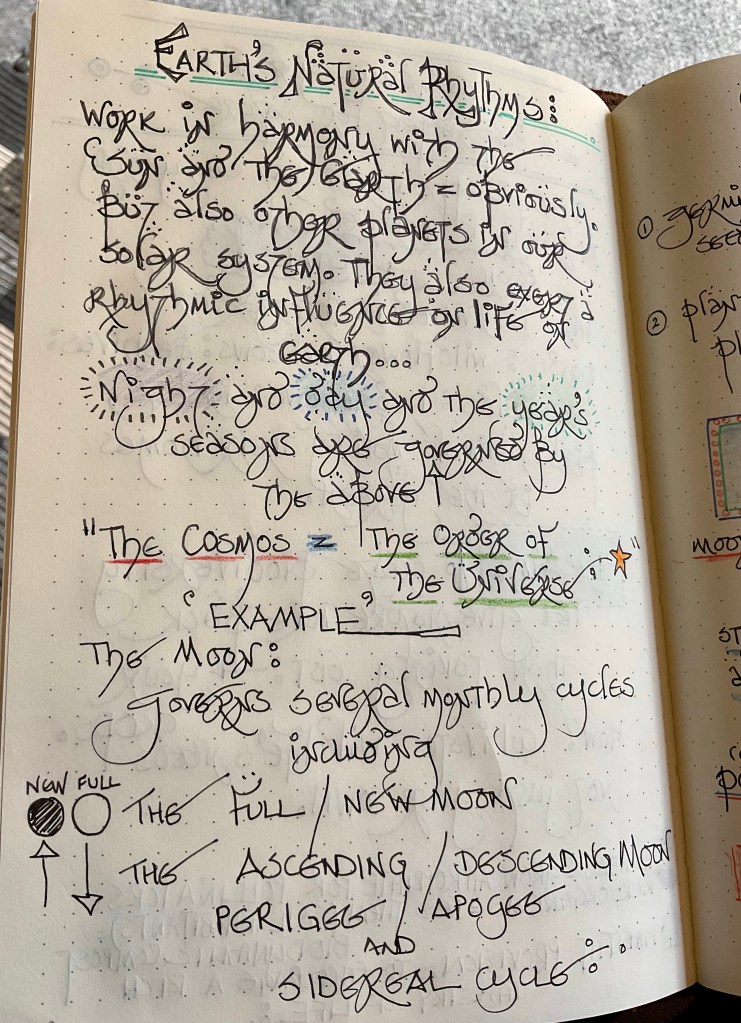 EARTH'S NATURAL RHYTHMS:
WORK IN HARMONY WITH THE
SUN AND THE EARTH = OBVIOUSLY.
BUT ALSO OTHER PLANETS IN OUR
SOLAR SYSTEM. THEY ALSO EXERT A
RHYTHMIC INFLUENCE ON LIFE ON
EARTH...
NIGHT AND DAY AND THE YEAR'S
SEASONS ARE GOVERNED BY
THE ABOVE ↑
"THE COSMOS = THE ORDER OF
THE UNIVERSE ★"
"EXAMPLE"
THE MOON:
GOVERNS SEVERAL MONTHLY CYCLES
INCLUDING
NEW FULL
THE FULL / NEW MOON
THE ASCENDING / DESCENDING MOON
PERIGEE / APOGEE
AND
SIDEREAL CYCLE
①
②
MOO